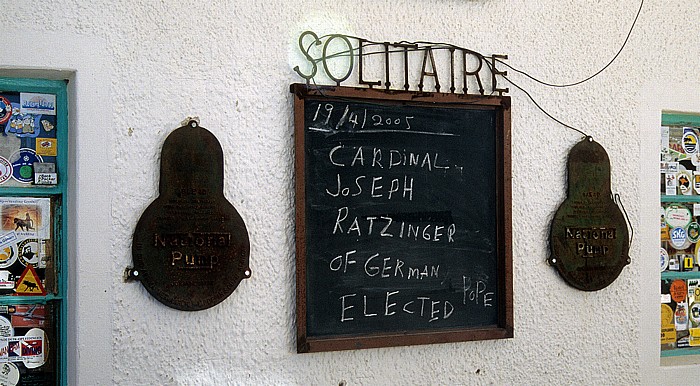 SOLITAIRE
19/4/2005
CARDINAL
JOSEPH
RATZINGER
OF GERMAN
ELECTED POPE
National
Pump
National
Pump